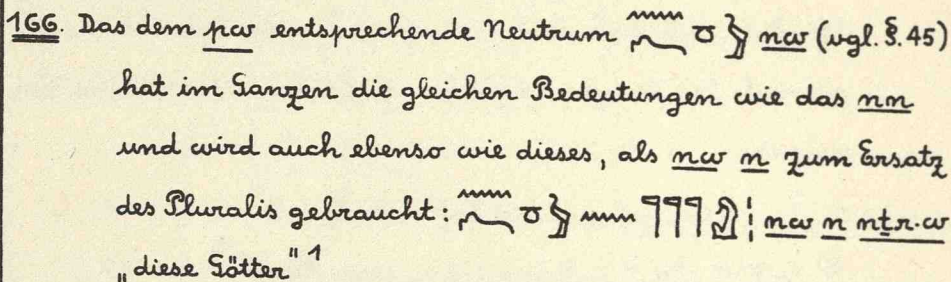 166. Das dem pw entsprechende Neutrum nw (vgl. §. 45)
hat im Ganzen die gleichen Bedeutungen wie das nn
und wird auch ebenso wie dieses, als nw n zum Ersatz
des Pluralis gebraucht: nw n nṯr.w
„diese Götter" 1